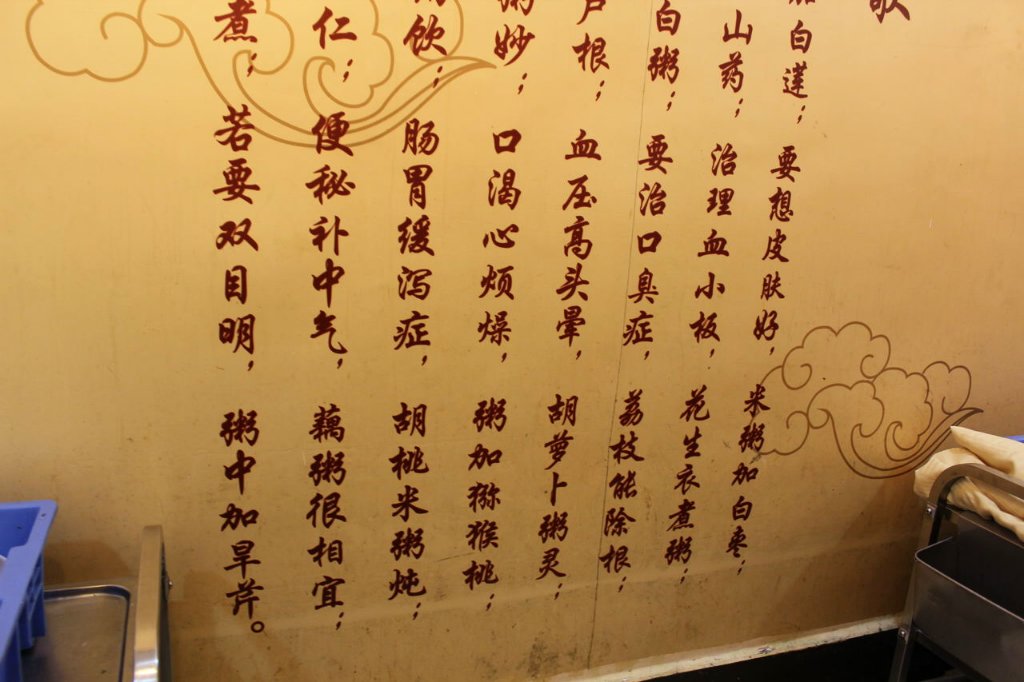 歌
加白莲；要想皮肤好，米粥加白枣；
山药；治理血小板，花生衣煮粥；
白粥；要治口臭症，荔枝能除根；
芦根；血压高头晕，胡萝卜粥灵；
粥妙；口渴心烦燥，粥加猕猴桃；
饮；肠胃缓泻症，胡桃米粥炖；
仁；便秘补中气，藕粥很相宜；
煮；若要双目明，粥中加旱芹。